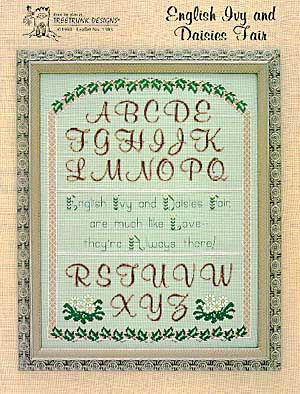 TREETRUNK DESIGNS
English Ivy and
Daisies Fair
ABCDE
FGHIJK
LMNOPQ
English Ivy and Daisies Fair,
are much like Love--
they're Always there!
RSTUVW
XYZ